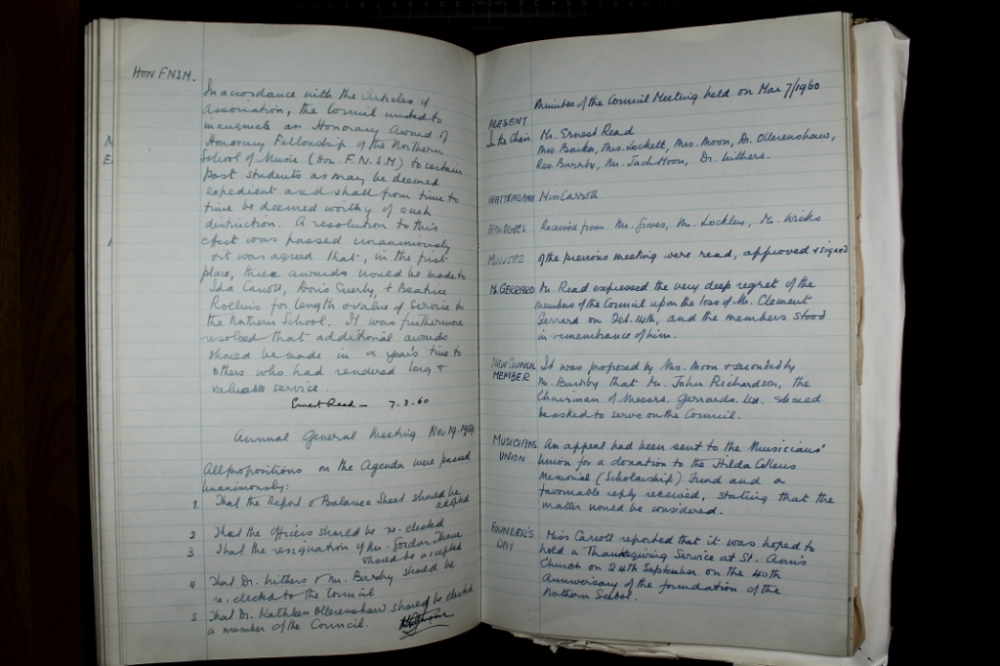 HON FNSM.
In accordance with the Articles of
Association, the Council wished to
inaugurate an Honorary Award of
Honorary Fellowship of the Northern
School of Music (Hon. F.N.S.M) to certain
past students as may be deemed
expedient and shall from time to
time be deemed worthy of such
distinction. A resolution to this
effect was passed unanimously
& it was agreed that, in the first
place, three awards would be made to
Ida Carroll, Doris Euerby, & Beatrice
Rollins for length & value of service to
the Northern School. It was furthermore
resolved that additional awards
should be made in a year's time to
others who had rendered long &
valuable service.
Ernest Read - 7.3.60
Annual General Meeting Nov 19. 1959
All propositions on the Agenda were passed
unanimously:
1. That the Report & Balance Sheet should be
adopted
2 That the Officers should be re-elected
3 That the resignation of Mr. Gordon Thorne
should be accepted
4 That Dr. Withers & Mr. Barsby should be
re-elected to the Council
5 That Dr. Kathleen Ollerenshaw should be elected
a member of the Council.
Minutes of the Council Meeting held on Mar 7/1960
PRESENT
In the Chair Mr. Ernest Read
Mrs. Barker, Mrs. Lockett, Mrs. Moon, Dr. Ollerenshaw,
Rev. Barsby, Mr. Jack Moon, Dr. Withers.
IN ATTENDANCE Miss Carroll
APOLOGIES Received from Mr. Groves, Mr. Lockless, Mr. Wicks
MINUTES of the previous meeting were read, approved & signed
Mr. GERRARD Mr. Read expressed the very deep regret of the
members of the Council upon the loss of Mr. Clement
Gerrard on Feb. 14th, and the members stood
in remembrance of him.
NEW COUNCIL MEMBER It was proposed by Mrs. Moon & seconded by
Mr. Barsby that Mr. John Richardson, the
Chairman of Messrs. Gerrards Ltd. should
be asked to serve on the Council.
MUSICIANS UNION An appeal had been sent to the Musicians'
Union for a donation to the Hilda Collens
Memorial (Scholarship) Fund and a
favourable reply received, stating that the
matter would be considered.
FOUNDER'S DAY Miss Carroll reported that it was hoped to
hold a Thanksgiving Service at St. Ann's
Church on 24th September on the 40th
Anniversary of the foundation of the
Northern School.